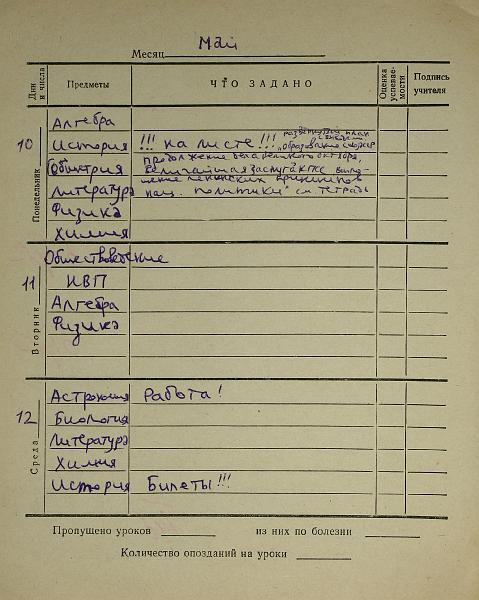 Месяц Май
Дни и числа Предметы ЧТО ЗАДАНО Оценка успевае-мости Подпись учителя
Понедельник 10
Алгебра
История !!! на листе!!! развёрнутый план
"Образование
продолжение дела великого октября,
величайшая заслуга КПСС
ленинских принципов
Литература нац. политики" см тетрадь
Физика
Химия
Вторник 11
Обществоведение
НВП
Алгебра
Физика
Среда 12
Астрономия Работа!
Биология
Литература
Химия
История Билеты!!!
Пропущено уроков из них по болезни
Количество опозданий на уроки